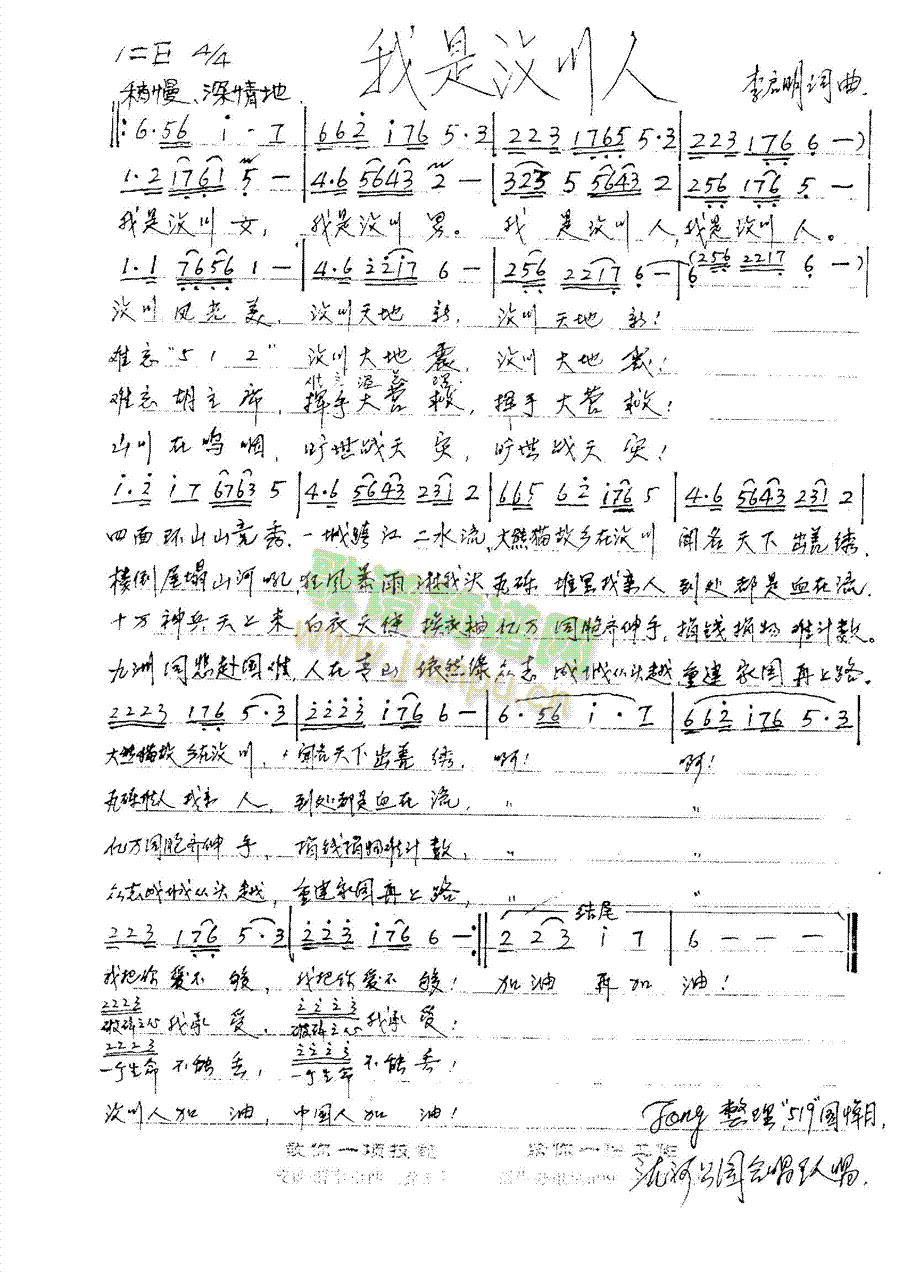 我是汶川人
1=E 4/4
稍慢、深情地
李启明词曲.
6·56 i - 7 | 662 i76 5·3 | 223 1765 5·3 | 223 176 6 —)
1·2 1761 5 — | 4·6 5643 2 — | 325 5 5643 2 | 256 176 5 —
我是汶川女, 我是汶川男。 我是汶川人,我是汶川人。
1·1 7656 1 — | 4·6 22i7 6 — | 256 2217 6 — | 6 (256 2217 6 —)
汶川风光美, 汶川天地新, 汶川天地新!
难忘"512" 汶川大地震, 汶川大地震!
难忘胡主席, 挥手大营救, 挥手大营救!
山川在呜咽, 旷世战天灾, 旷世战天灾!
i·2 i7 6763 5 | 4·6 5643 231 2 | 665 62 i76 5 | 4·6 5643 231 2
四面环山山竞秀,一城跨江二水流,大熊猫故乡在汶川 闻名天下出羌绣.
楼倒屋塌山河吼,狂风暴雨淋我头,瓦砾堆里找亲人 到处都是血在流.
十万神兵天上来 白衣天使 亿万同胞齐伸手,捐钱捐物难计数。
九洲同悲赴国难,人在青山依然绿 众志成城从头越,重建家园再上路.
2223 176 5·3 | 2223 i76 6 — | 6·56 i · 7 | 662 i76 5·3
大熊猫故乡在汶川, 闻名天下出羌绣, 啊! 啊!
瓦砾 找亲人, 到处都是血在流, " "
亿万同胞齐伸手, 捐钱捐物难计数, " "
众志成城从头越, 重建家园再上路, " "
结尾
223 176 5·3 | 223 i76 6 — :‖ 2 23 i 7 | 6 — — — ‖
我把你爱不够, 我把你爱不够! 加油再加油!
2223 2223
破碎之心我承受, 破碎之心我承受!
2223 2223
一个生命不能丢, 一个生命不能丢!
汶川人加油, 中国人加油!
歌谱简谱网
www.jianpu.cn
Fong 整理"519"国悼日,
公园合唱 人唱.
教你一项技能